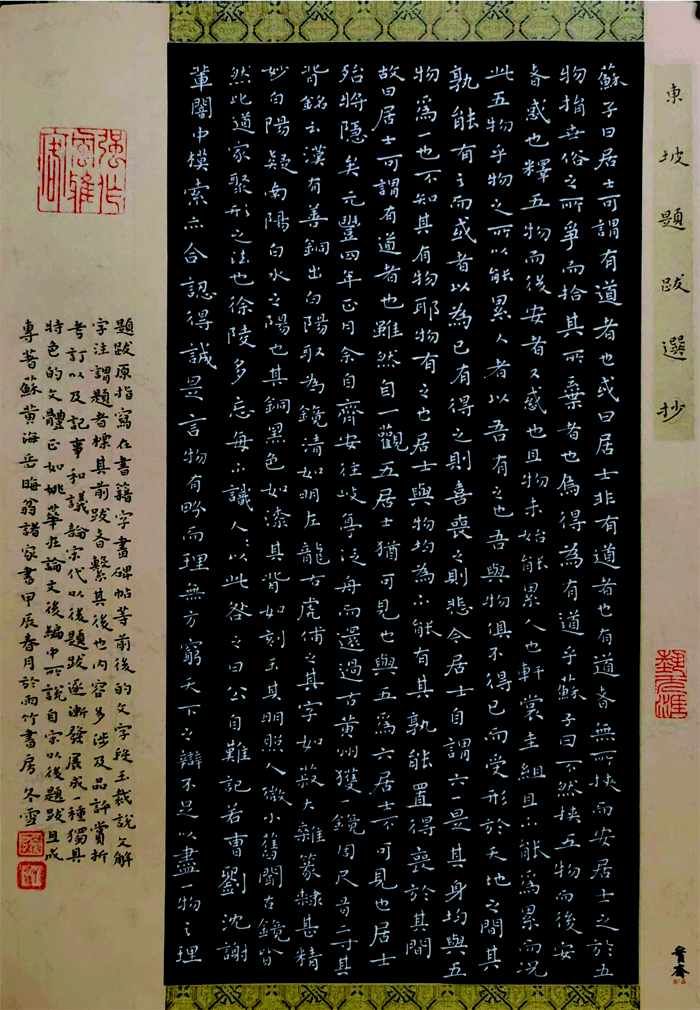 東坡題跋選抄
蘇子曰居士可謂有道者也或曰居士非有道者也有道者無所挾而安居士之於五
物捐世俗之所爭而拾其所棄者也烏得為有道乎蘇子曰不然挾五物而後安
者惑也釋五物而後安者又惑也且物未始能累人也軒裳圭組且不能為累而況
此五物乎物之所以能累人者以吾有之也吾與物俱不得已而受形於天地之間其
孰能有之而或者以為己有得之則喜喪之則悲今居士自謂六一是其身均與五
物為一也不知其有物耶物有之也居士與物均為不能有其孰能置得喪於其間
故曰居士可謂有道者也雖然自一觀五居士猶可見也與五為六居士不可見也居士
殆將隱矣元豐四年正月余自齊安往岐亭泛舟而還過古黃州獲一鏡周尺有二寸其
背銘云漢有善銅出白陽取為鏡清如明左龍右虎俌之其字如菽大雜篆隸甚精
妙白陽疑南陽白水之陽也其銅黑色如漆其背如刻玉其明照人微小舊聞古鏡皆
然此道家聚形之法也徐陵多忘每不識人人以此咎之曰公自難記若曹劉沈謝
輩闇中摸索亦合認得誠是言物有畛而理無方窮天下之辯不足以盡一物之理
題跋原指寫在書籍字畫碑帖等前後的文字段玉裁說文解
字注謂題者標其前跋者繫其後也內容多涉及品評賞析
考訂以及記事和議論宋代以後題跋逐漸發展成一種獨具
特色的文體正如姚華在論文後編中所說自宋以後題跋且成
專著蘇黃海岳晦翁諸家書甲辰春月於雨竹書房冬雪